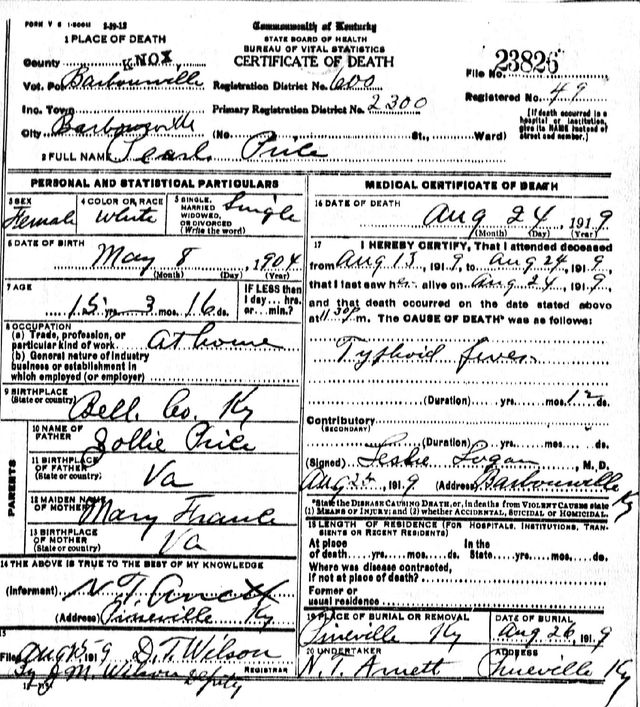 FORM V S 1-500M 2-19-12
Commonwealth of Kentucky
STATE BOARD OF HEALTH
BUREAU OF VITAL STATISTICS
CERTIFICATE OF DEATH
1 PLACE OF DEATH
County KNOX,
File No. 23826
Vot. Pct. Barbourville Registration District No. 600
Registered No. 49
Inc. Town Primary Registration District No. 2300
[If death occurred in a hospital or institution, give its NAME instead of street and number.]
City Barbourville (No. St., Ward)
2 FULL NAME Pearl Price
PERSONAL AND STATISTICAL PARTICULARS
3 SEX Female
4 COLOR OR RACE White
5 SINGLE, MARRIED WIDOWED, OR DIVORCED (Write the word) Single
6 DATE OF BIRTH
May 8, 1904
(Month) (Day) (Year)
7 AGE
15 yrs. 3 mos. 16 ds.
IF LESS than 1 day... hrs. or... min.?
8 OCCUPATION
(a) Trade, profession, or particular kind of work At home
(b) General nature of industry business or establishment in which employed (or employer)
9 BIRTHPLACE
(State or country) Bell Co. Ky
PARENTS
10 NAME OF FATHER Price
11 BIRTHPLACE OF FATHER (State or country) Va
12 MAIDEN NAME OF MOTHER Mary
13 BIRTHPLACE OF MOTHER (State or country) Va
14 THE ABOVE IS TRUE TO THE BEST OF MY KNOWLEDGE
(Informant) N T Arnett
(Address) Pineville Ky
15
Filed Aug 191 9 D. T. Wilson
REGISTRAR
By J M. Wilson Deputy
MEDICAL CERTIFICATE OF DEATH
16 DATE OF DEATH
Aug 24 1919
(Month) (Day) (Year)
17 I HEREBY CERTIFY, That I attended deceased
from Aug 13, 191 9, to Aug 24, 191 9,
that I last saw her alive on Aug 24, 191 9,
and that death occurred on the date stated above
at 11 30 P m. The CAUSE OF DEATH* was as follows:
Typhoid fever
(Duration) yrs. mos. 12 ds.
Contributory
(SECONDARY)
(Duration) yrs. mos. ds.
(Signed) Leslie Logan, M. D.
Aug 191 9 (Address) Barbourville Ky
*State the DISEASE CAUSING DEATH, or, in deaths from VIOLENT CAUSES state
(1) MEANS OF INJURY; and (2) whether ACCIDENTAL, SUICIDAL or HOMICIDAL.
18 LENGTH OF RESIDENCE (FOR HOSPITALS, INSTITUTIONS, TRANSIENTS OR RECENT RESIDENTS)
At place of death yrs. mos. ds. In the State yrs. mos. ds.
Where was disease contracted, if not at place of death?
Former or usual residence
19 PLACE OF BURIAL OR REMOVAL DATE OF BURIAL
Pineville Ky Aug 26, 191 9
20 UNDERTAKER ADDRESS
N. T. Arnett Pineville Ky